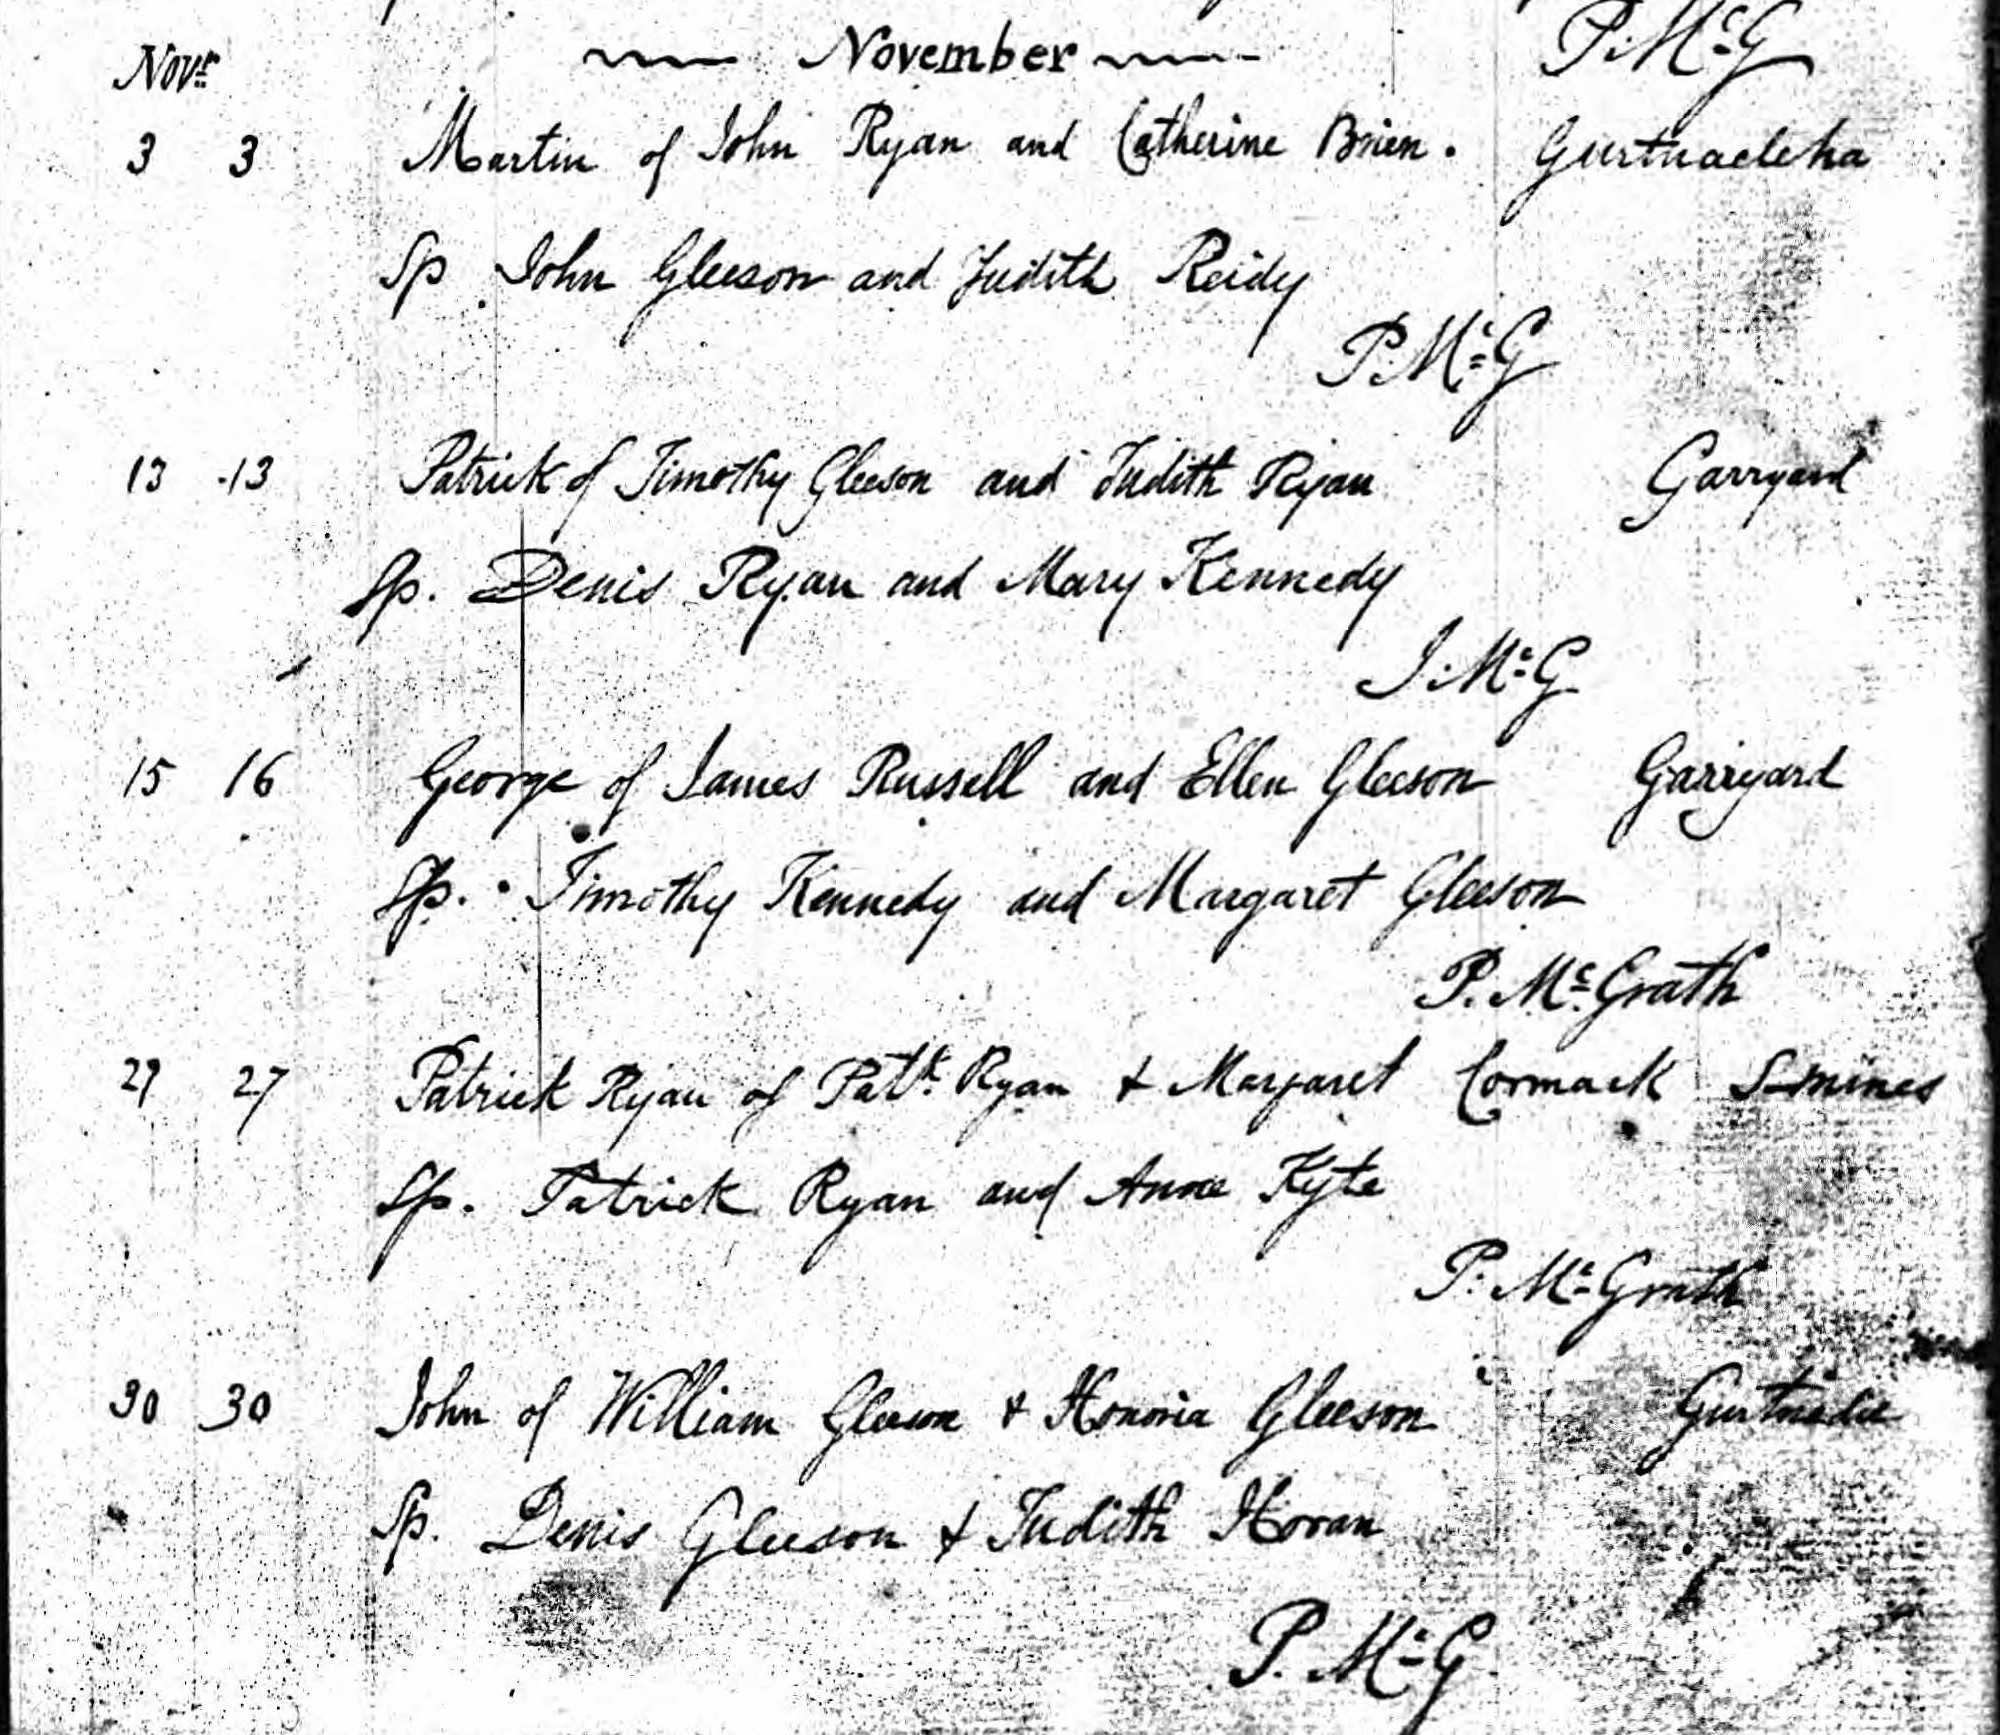 P. McG
Novr November
3 3 Martin of John Ryan and Catherine Brien. Gurtnacleha
Sp John Gleeson and Judith Reidy
P. McG
13 13 Patrick of Timothy Gleeson and Judith Ryan Garryard
Sp. Denis Ryan and Mary Kennedy
J. McG
15 16 George of James Russell and Ellen Gleeson Garryard
Sp. Timothy Kennedy and Margaret Gleeson
P. McGrath
27 27 Patrick Ryan of Patk Ryan & Margaret Cormack S-mines
Sp. Patrick Ryan and Anne Kyte
P. McGrath
30 30 John of William Gleeson & Honoria Gleeson
Sp. Denis Gleeson & Judith Horan
P. McG